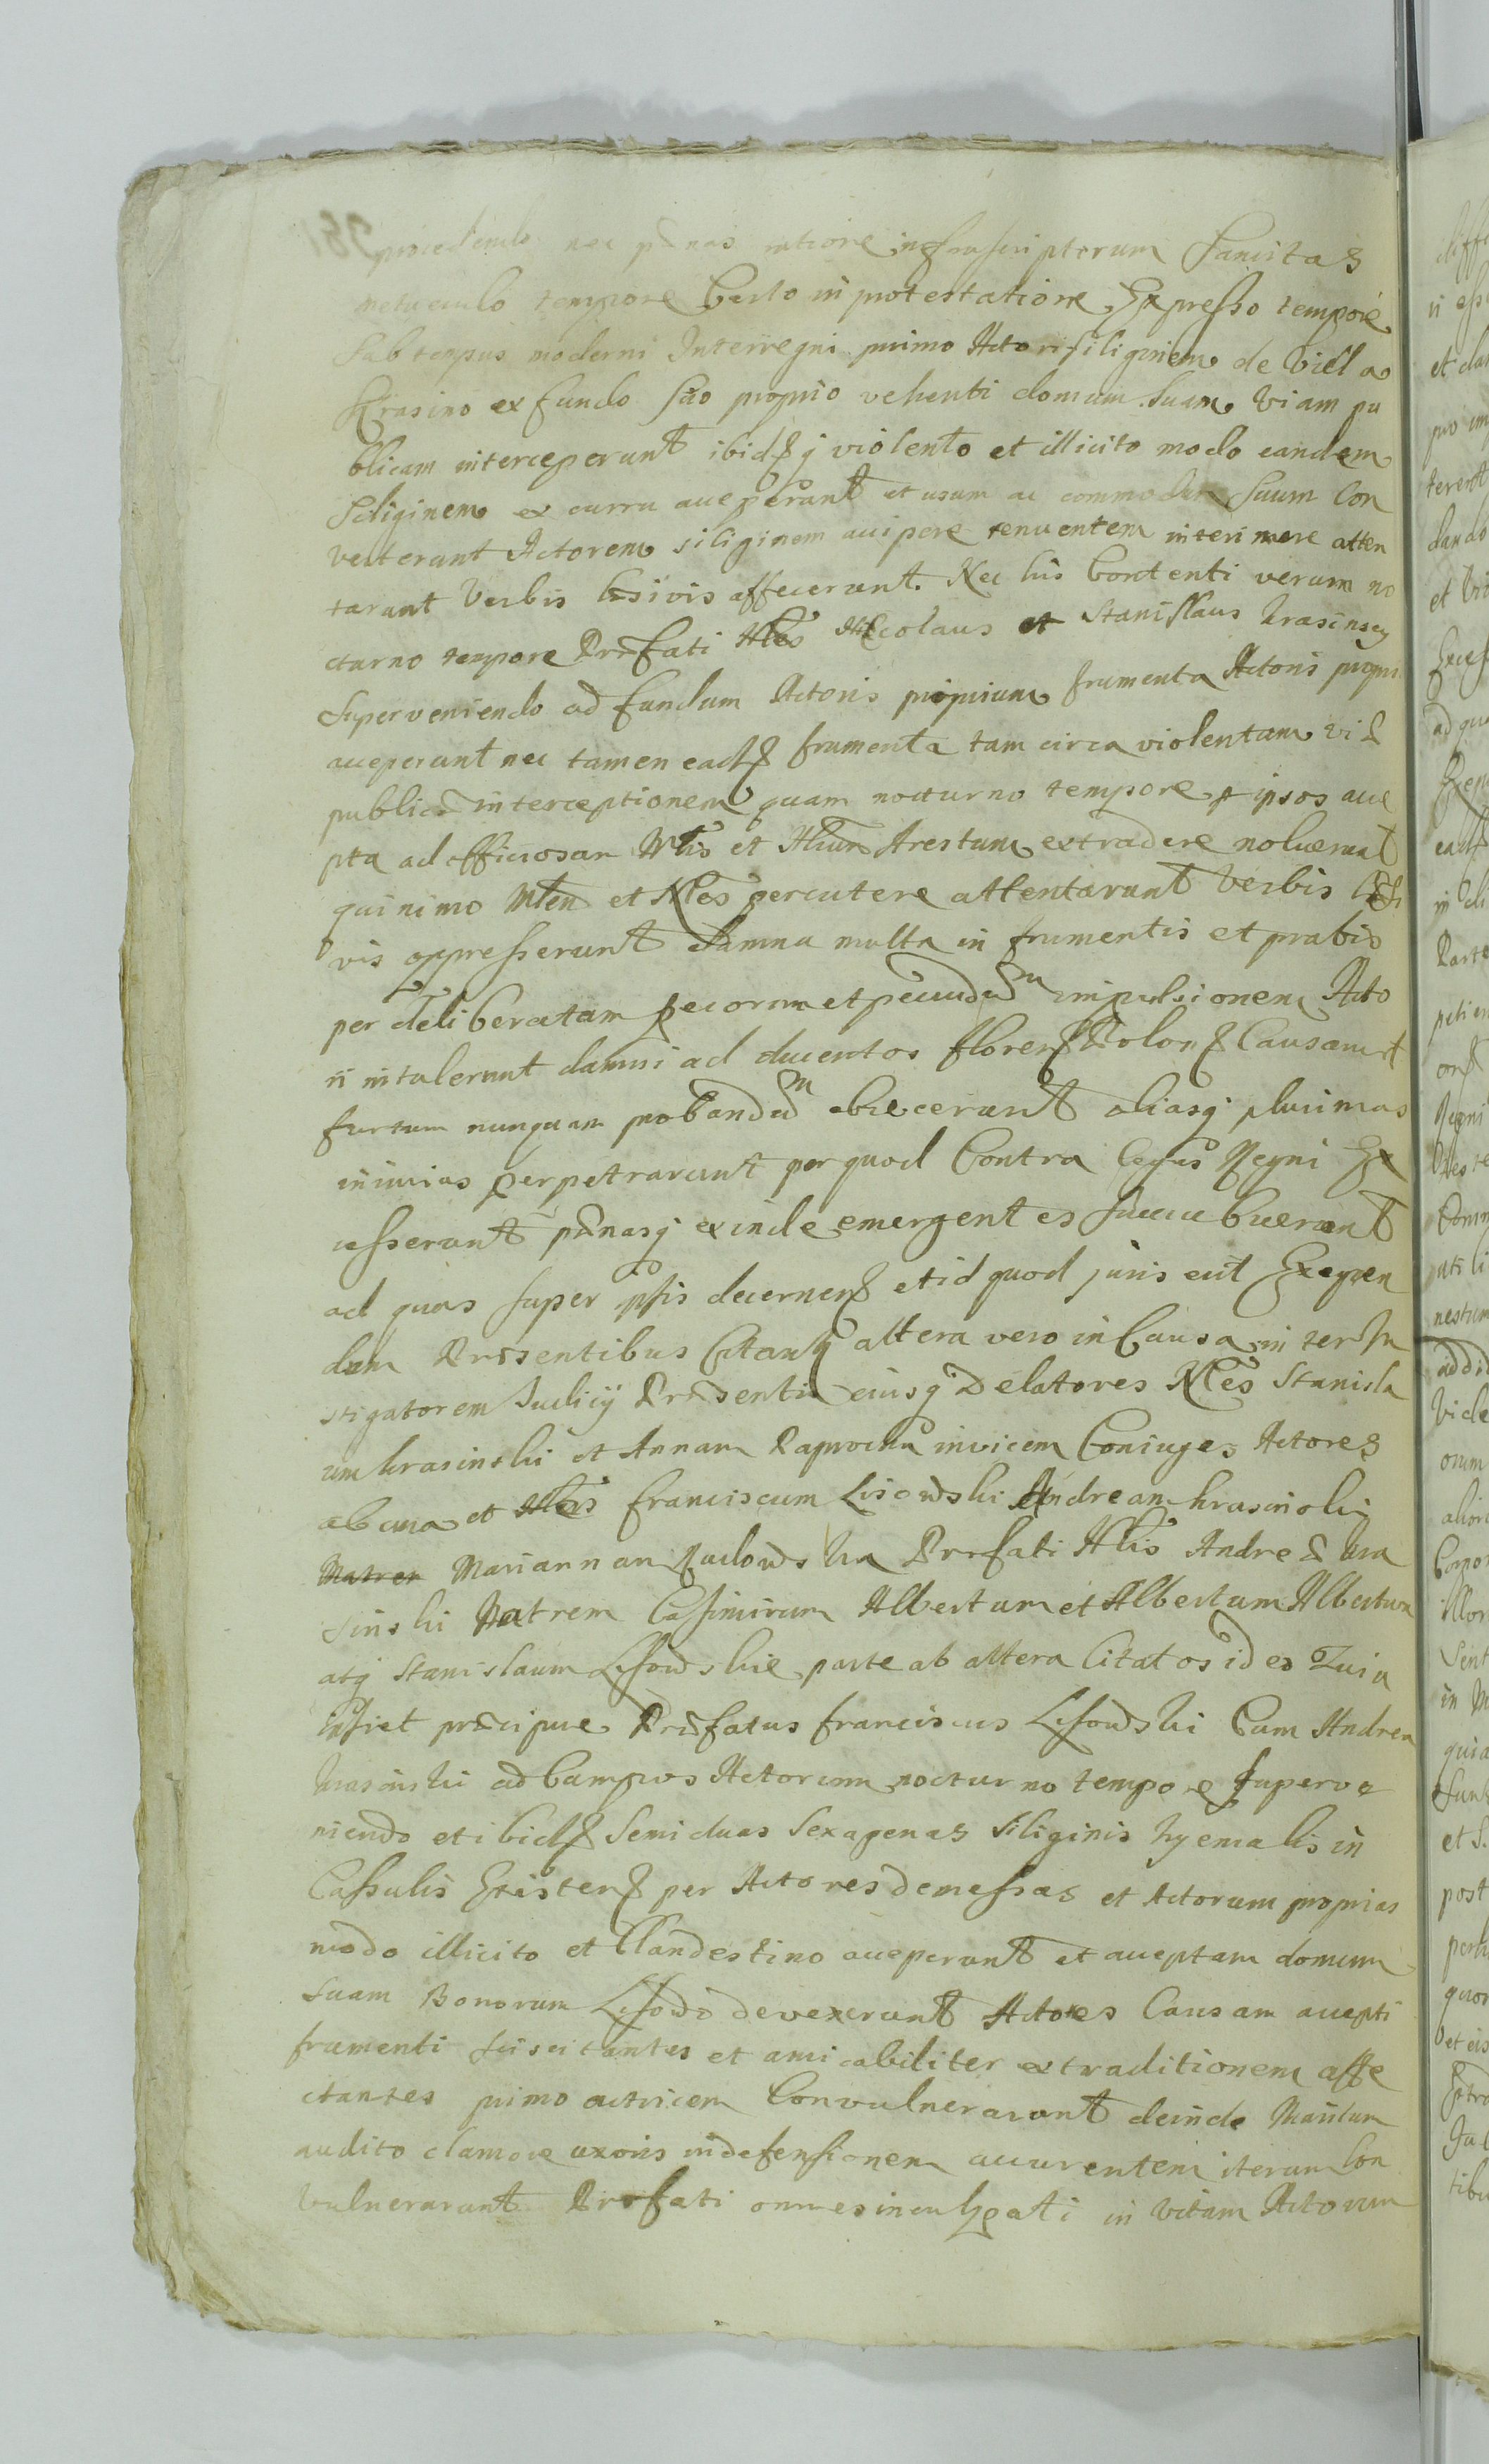 procedendo nec pænas ratione infrascriptorum Sancitas
metuendo tempore Certo in protestatione Expresso tempore
Sub tempus moderni Interregni primo Actori siliginem de Villa
Krasino ex fundo suo proprio vehenti domum Suam Viam pu
blicam interceperunt ibidq violento et illicito modo eandem
Siliginem ex curru acceperunt et usum ac commodum Suum Con
verterunt Actorem siliginem accipere renuentem interimere atten
tarunt Verbis læsivis affecerunt. Nec his Contenti verum no
cturno tempore Præfati Nles Nicolaus et Stanislaus Krasinscy
Superveniendo ad fundum Actoris proprium frumenta Actoris propria
acceperunt nec tamen ead frumenta tam circa violentam viæ
publicæ interceptionem quam nocturno tempore p ipsos acce
pta ad officiosam Mlis et Nlium Arestum extradere noluerunt
quinimo Mlem et Nles percutere attentarunt Verbis læsi
vis oppresserunt damna multa in frumentis et pratis
per deliberatam pecorum et pecudum impulsionem Acto
ri intulerunt damni ad ducentos floren Polon Causarunt
furtum nunquam probandum obiecerunt aliasq plurimas
iniurias perpetrarunt per quod Contra leges Regni Ex
cesserunt pænasq exinde emergentes succubuerunt
ad quas super ipsis decernen et id quod juris erit Exequen
dum Præsentibus Citantq altera vero in Causa inter In
stigatorem Judicij Præsentis eiusq Delatores Nles Stanisla
um Krasinski et Annam Paprocka invicem Coniuges Actores
ab una et Nles Franciscum Lisowski Andream Krasinski
Matrem Mariannam Radowska Præfati Nlis Andreæ Kra
sinski Matrem Casimirum Albertum et Albertum Albertum
atq Stanislaum Lisowskie parte ab altera Citatos ideo Quia
ipsi et præcipue Præfatus Franciscus Lisowski Cum Andrea
Krasinski ad Campos Actorum nocturno tempore superve
niendo et ibid Semiduas Sexagenas Siliginis hyemalis in
Cassulis Existen per Actores demessas et Actorum proprias
modo illicito et Clandestino acceperunt et acceptam domum
Suam Bonorum Lisowo devexerunt Actores Causam accepti
frumenti sciscitantes et amicabiliter extraditionem affe
ctantes primo actricem Convulnerarunt deinde Maritum
audito clamore uxoris in defensionem accurentem iterum Con
vulnerarunt Præfati omnes inculpati in Vitam Actorum